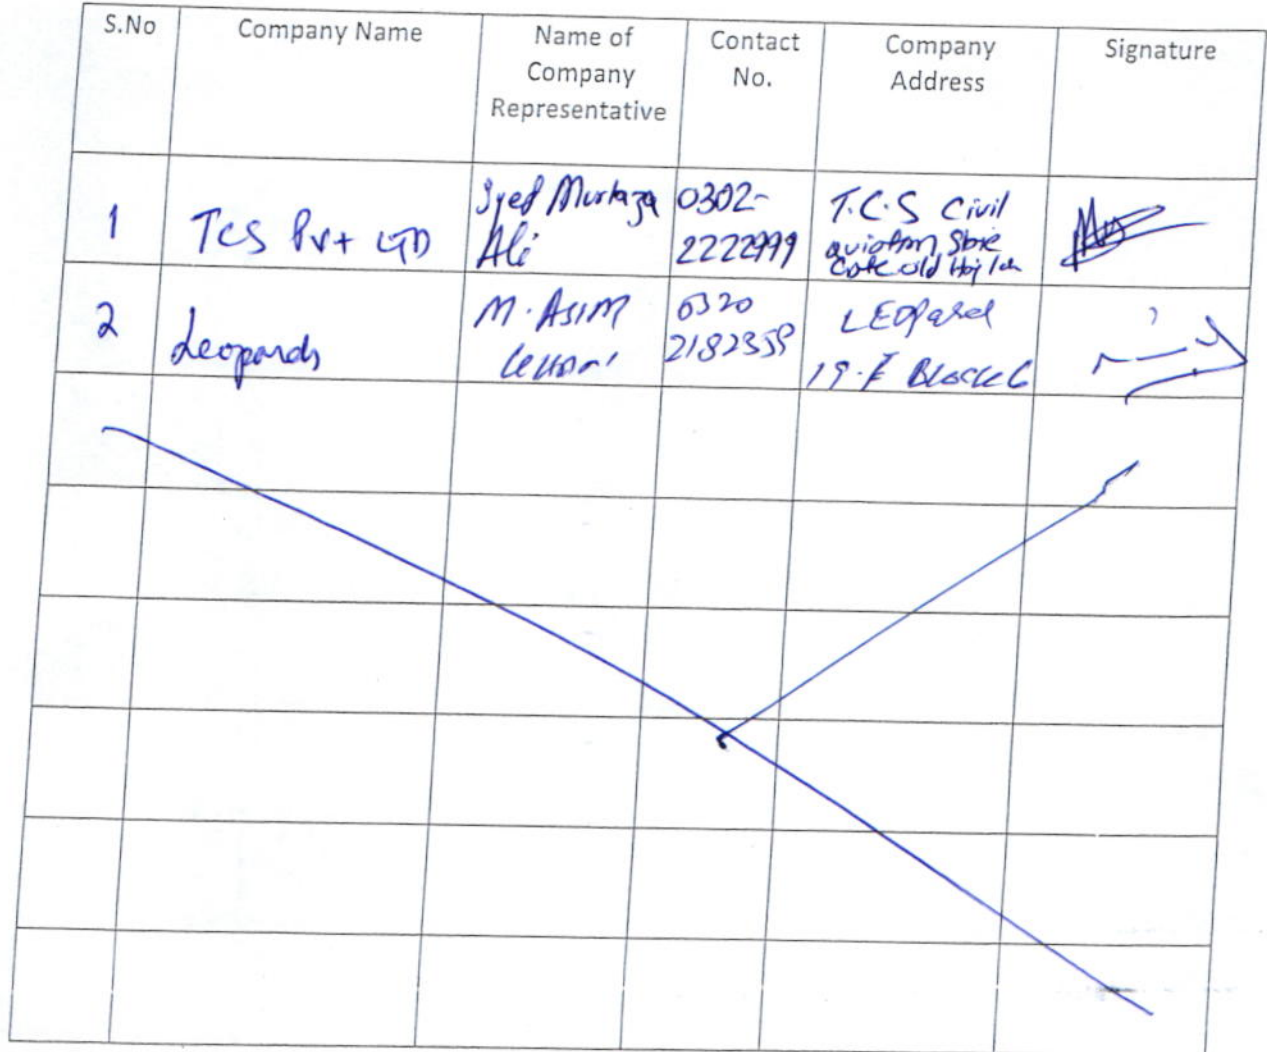 S.No Company Name Name of Company Representative Contact No. Company Address Signature
1 TCS Pvt LTD Syed Murtaza Ali 0302-2222999 T.C.S Civil aviation Gate old Haj
2 Leopards M. ASIM 0320 LEOPARd 19-E BLOCK 6